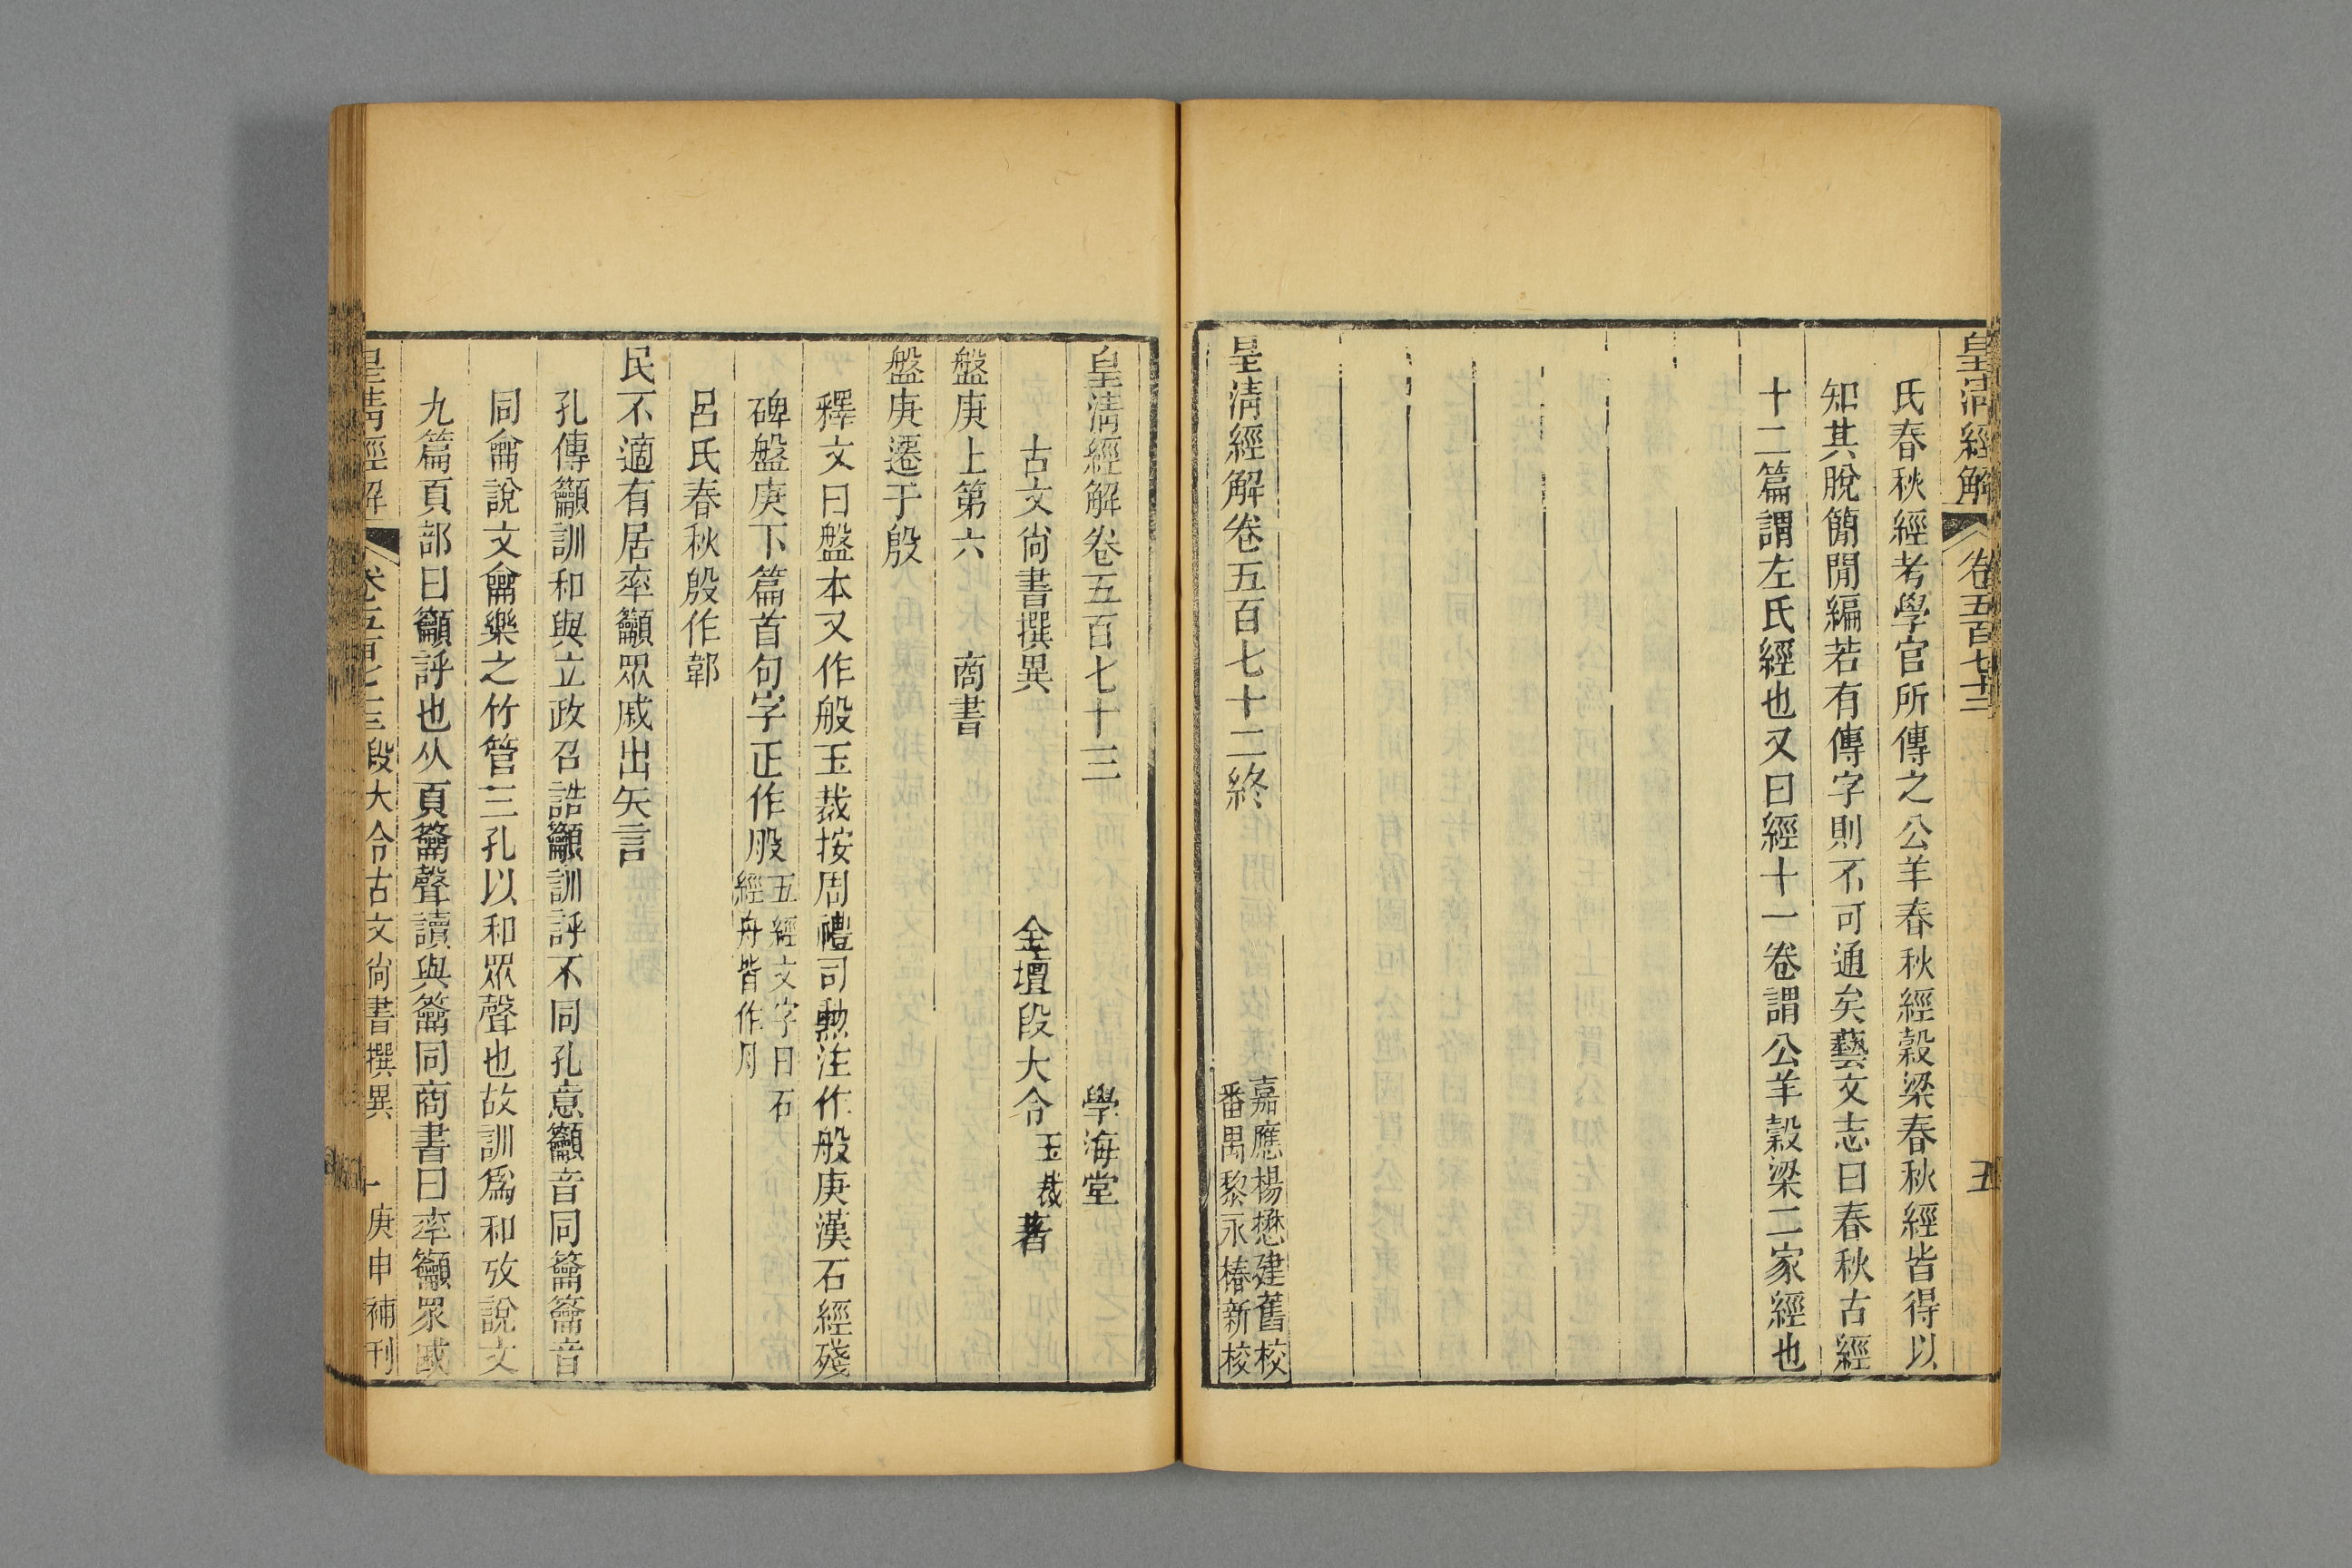 皇淸經解 卷五百七十二 五
氏春秋經考學官所傳之公羊春秋經穀梁春秋經皆得以
知其脫簡閒編若有傳字則不可通矣藝文志曰春秋古經
十二篇謂左氏經也又曰經十一卷謂公羊穀梁二家經也
皇淸經解卷五百七十二終
嘉應楊懋建舊校
番禺黎永椿新校
皇淸經解卷五百七十三 學海堂
古文尙書撰異 金壇段大令玉裁著
盤庚上第六 商書
盤庚遷于殷
釋文曰盤本又作般玉裁按周禮司勳注作般庚漢石經殘
碑盤庚下篇首句字正作股五經文字曰石
經舟皆作月
呂氏春秋殷作郼
民不適有居率籲眾戚出矢言
孔傳籲訓和與立政召誥籲訓評不同孔意籲音同籥籥音
同龠說文龠樂之竹管三孔以和眾聲也故訓爲和攷說文
九篇頁部曰籲評也从頁籥聲讀與籥同商書曰率籲眾戚
皇淸經解 卷五百七十三 段大令古文尙書撰異 一 庚申補刊